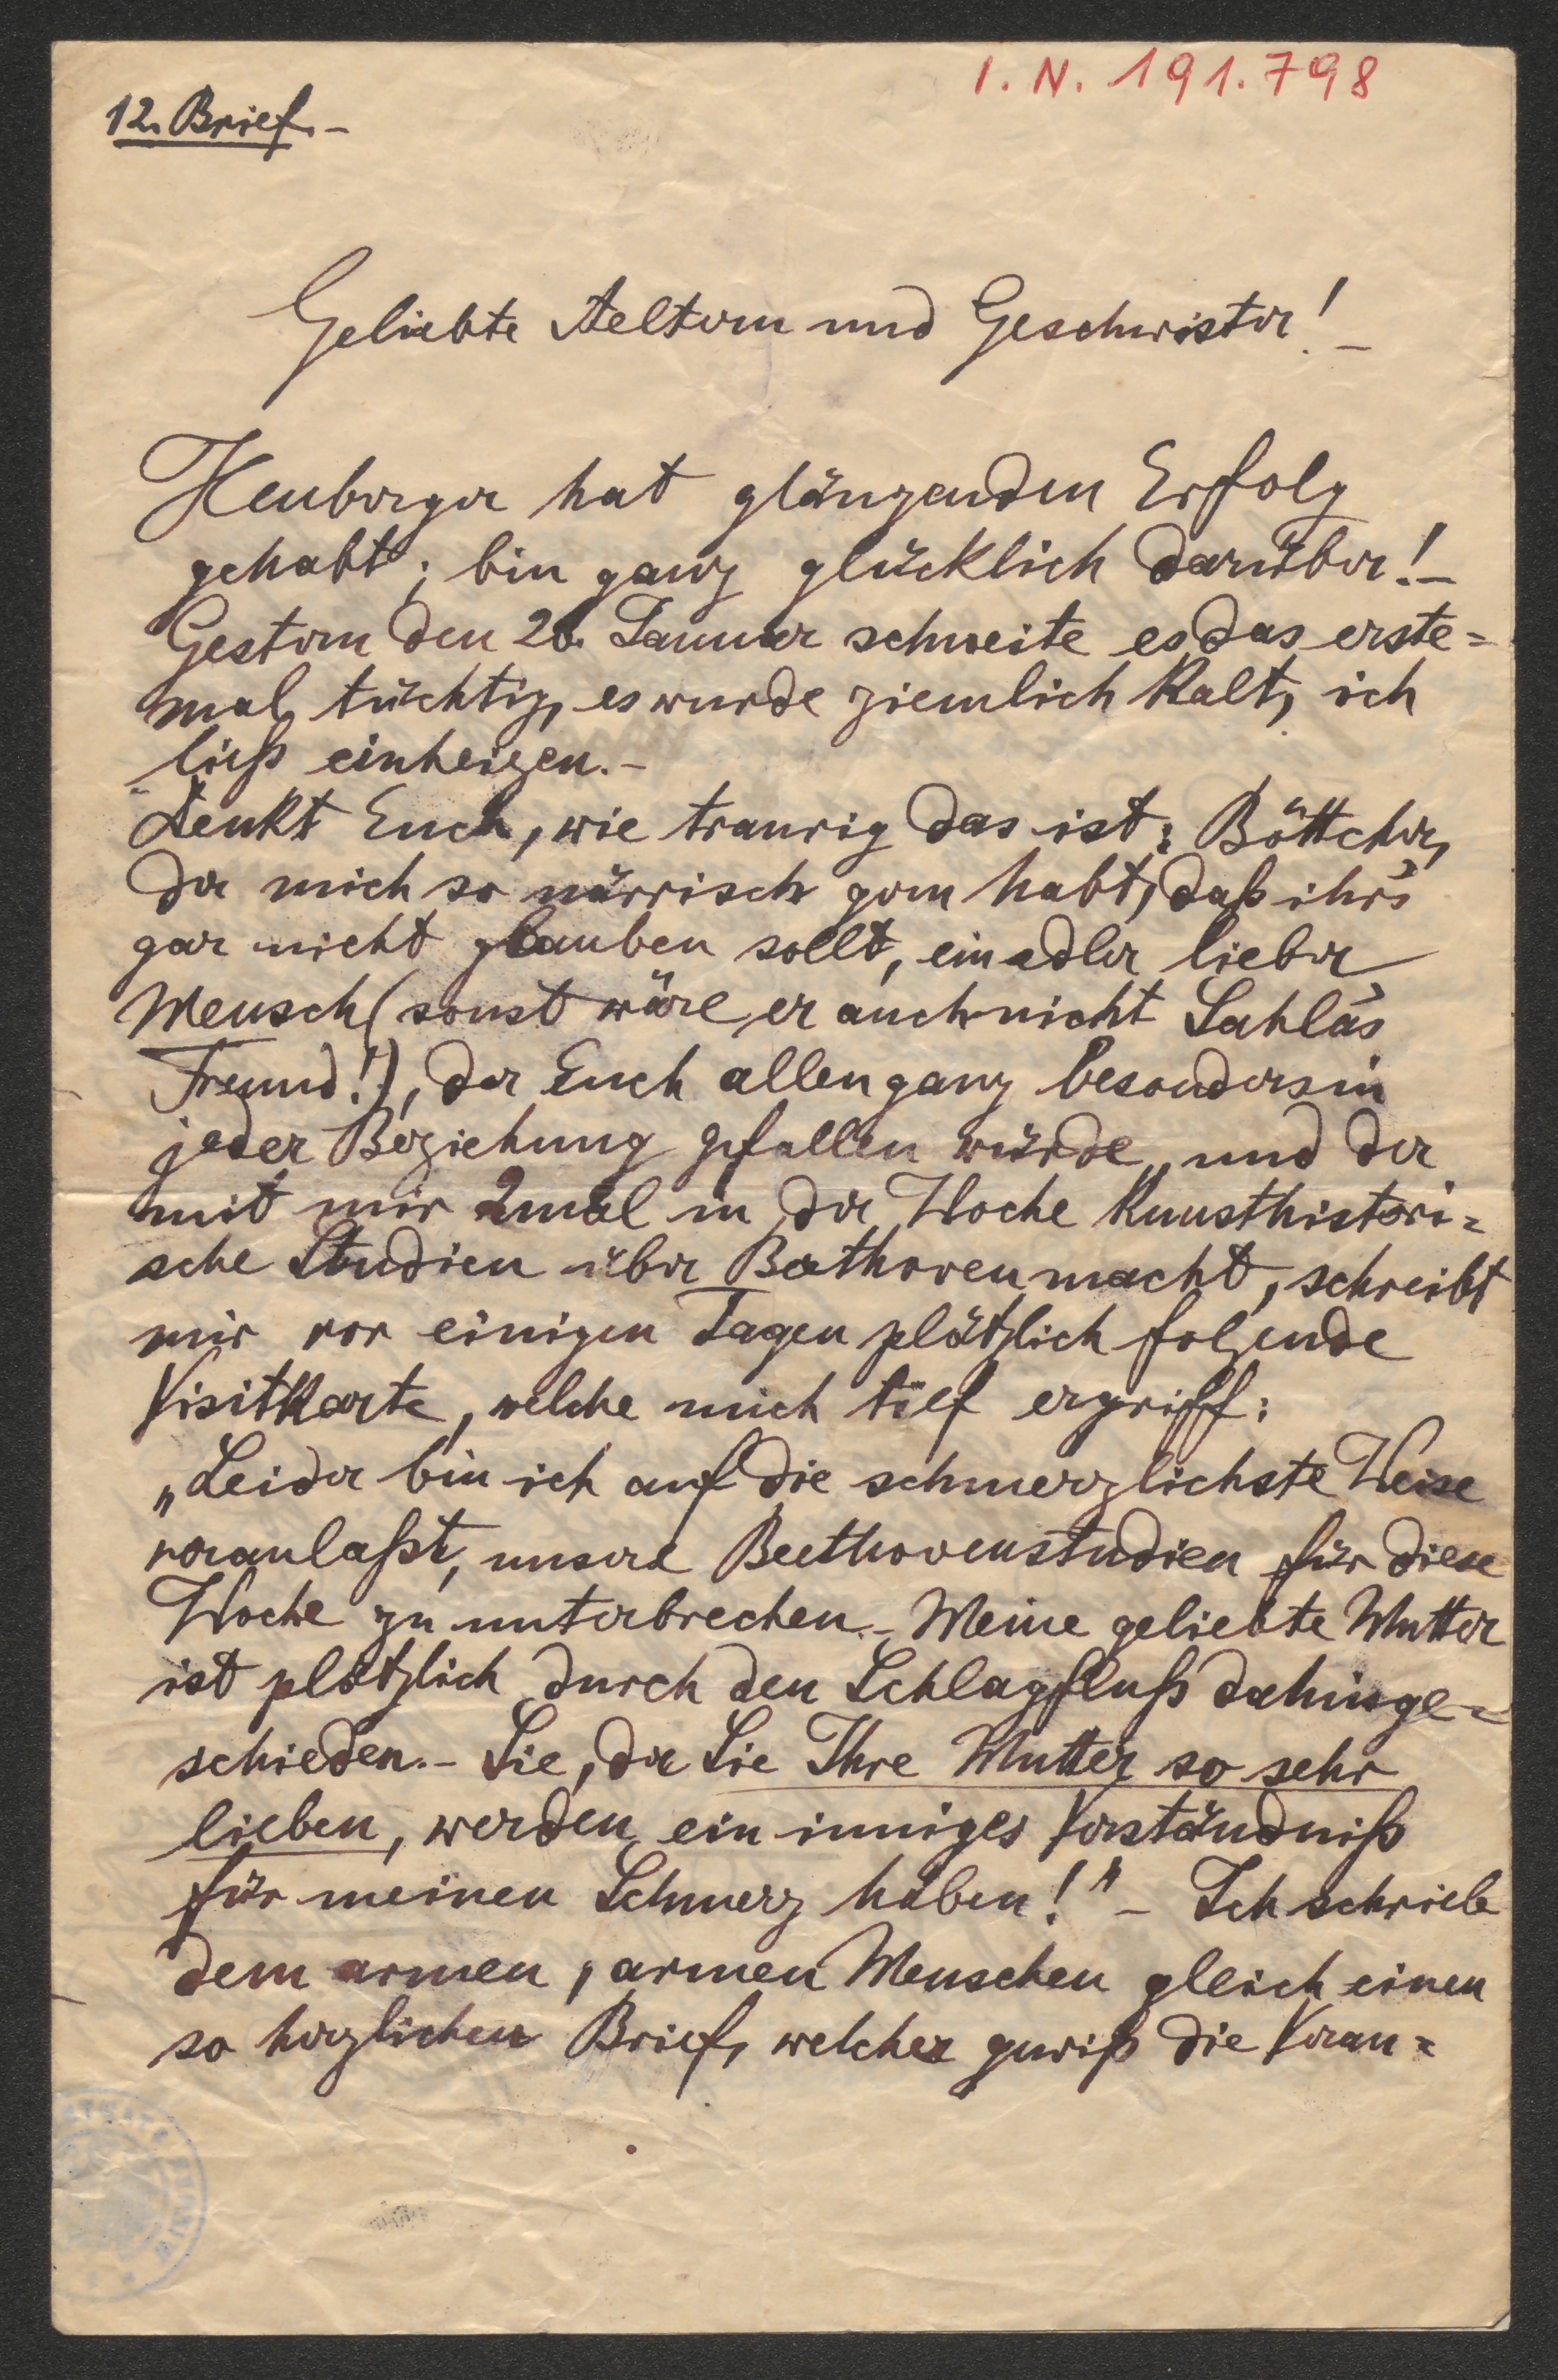 I. N. 191.798
12. Brief.-
Geliebte Aeltern und Geschwister!-
Heuberger hat glänzenden Erfolg
gehabt; bin ganz glücklich darüber!-
Gestern den 26. Januar schneite es das erste=
mal tüchtig, es wurde ziemlich kalt, ich
ließ einheizen.-
Denkt Euch, wie traurig das ist: Böttcher,
der mich so närrisch gern habt, daß ihr's
gar nicht glauben sollt, ein edler lieber
Mensch (sonst wäre er auch nicht Sahla's
Freund!), der Euch allen ganz besonders in
jeder Beziehung gefallen würde, und der
mit mir 2mal in der Woche kunsthistori=
sche Studien über Beethoven macht, schreibt
mir vor einigen Tagen plötzlich folgende
Visitkarte, welche mich tief ergriff:
„Leider bin ich auf die schmerzlichste Weise
veranlaßt, unsere Beethovenstudien für diese
Woche zu unterbrechen.- Meine geliebte Mutter
ist plötzlich durch den Schlagfluß dahinge=
schieden.- Sie, der Sie Ihre Mutter so sehr
lieben, werden ein inniges Verständniß
für meinen Schmerz haben!" - Ich schrieb
dem armen, armen Menschen gleich einen
so herzlichen Brief, welcher gewiß die Veran=